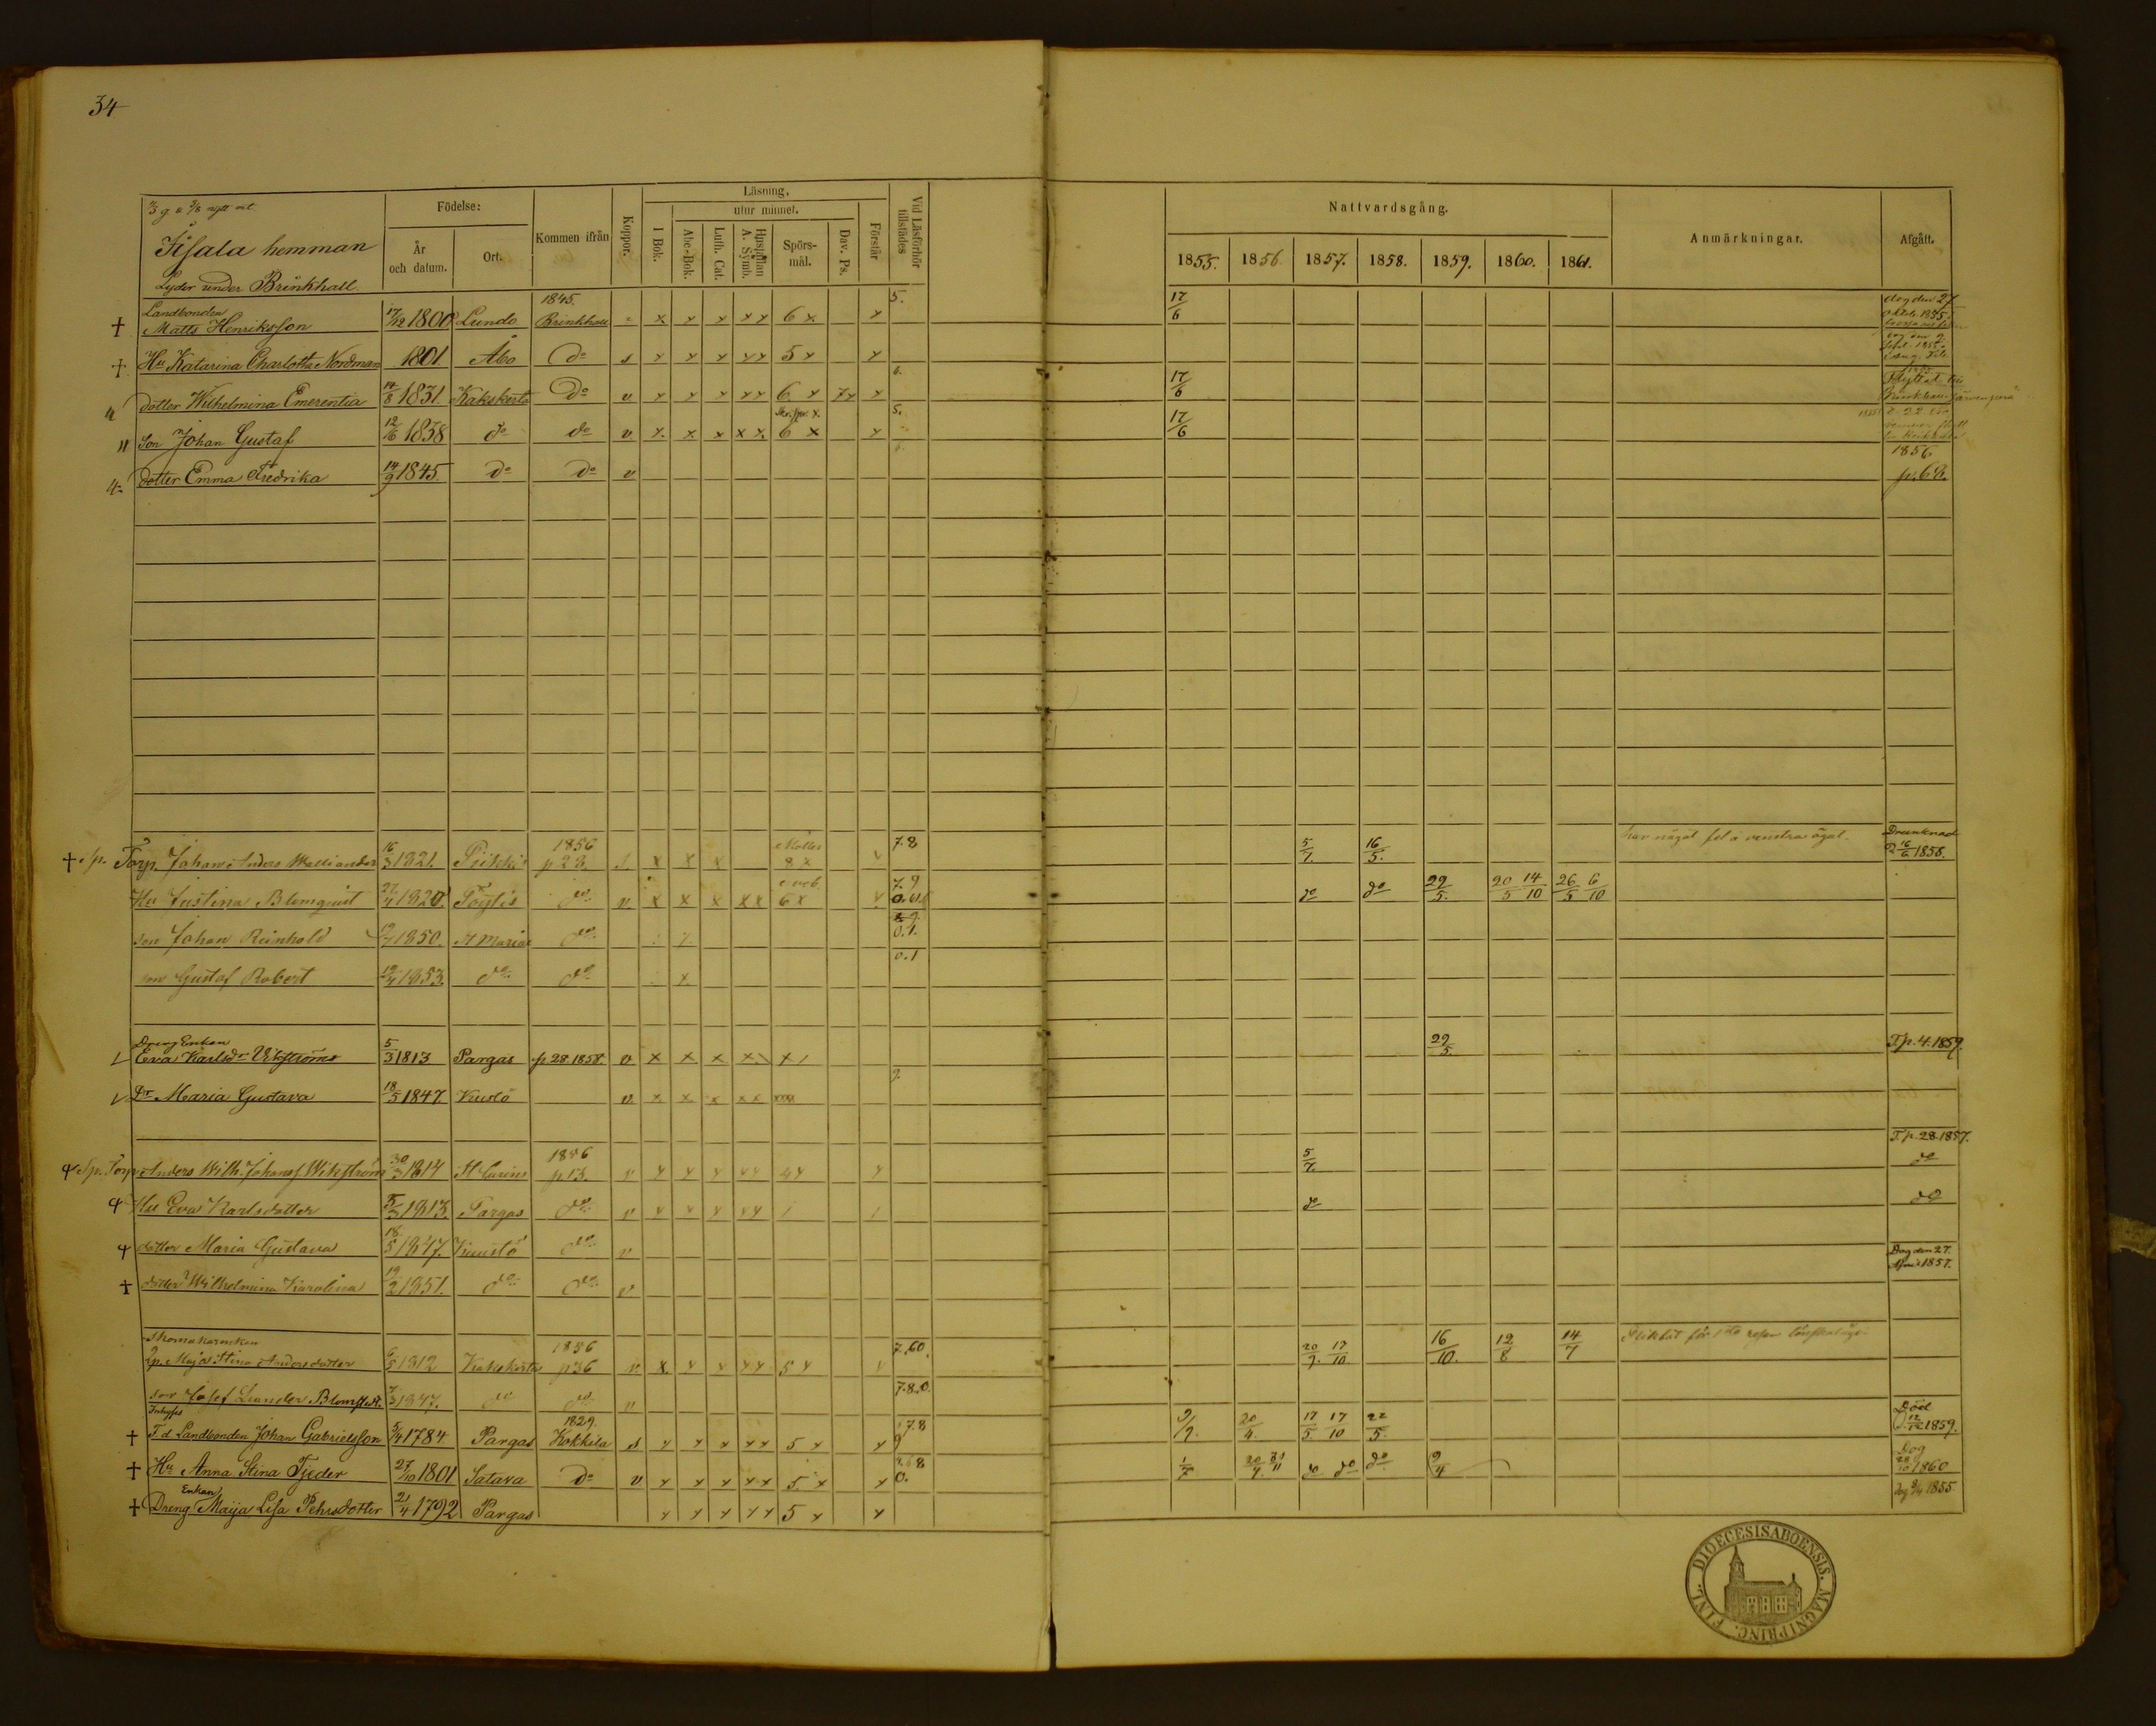 34
Iisala hemman
Lyder under Brinkhall.
Födelse: År och datum. Ort. Kommen ifrån Koppor. Läsning. I Bok. utur minnet. Abc-Bok. Luth. Cat. Hustaflan A. Symb. Spörsmål. Dav. Ps. Förstår Vid Läsförhör tillstädes
Nattvardsgång. 1855. 1856. 1857. 1858. 1859. 1860. 1861. Anmärkningar. Afgått.
Landbonden 1845. 5. 17/6 dog den 27
† Matts Henriksson 17/12 1800 Lundo Brinkhall x x x x x 6 x x
† Hu Katarina Charlotta Nordman 1801 Åbo do s x x x x x 5 x x
dotter Wilhelmina Emerentia 14/8 1831 Kakskerta Do v x x x x x 6 x 7x x 17/6 Flyttat
Son Johan Gustaf 12/6 1838 do do v x x x x x 6 x x 5. 17/6
dotter Emma Fredrika 14/9 1845. Do Do v 1856 p. 68.
† Torp. Johan Anders Walliander 16/3 1821. Piikkis 1856 p 28. s. x x x 8 x v 7.8 5/7. 16/5. har något fel å venstra ögat. Drunknad d 16/6 1858.
Hu Justina Blomquist 27/4 1820. Töfsis do v. x x x x x 6 x 7.9 do do 29/5. 20/5 14/10 26/5 6/10
son Johan Reinhold 19/7 1850. St Mariæ do 0.1.
son Gustaf Robert 19/4 1853. do do x 0.1
Dreng Enkan
Eva Karlsdr Wikströms 5/3 1813 Pargas p. 28. 1858. v x x x x 29/5. T.p. 4. 1859.
Dr Maria Gustava 18/5 1847 Kustö v. x x x x x xxxx 9
T.p. 28. 1857.
Torp. Anders Wilh. Johanss. Wikström 30/3 1814 St Carins 1856 p 13. v x x x x x 4 x x 5/7. do
Hu Eva Karlsdotter 5/3 1813. Pargas do v x x x x x do do
dotter Maria Gustava 18/5 1847. Kuustö do v
† dotter Wilhelmina Karolina 19/2 1851. do do v Dog den 27. April 1857.
Skomakarenkan
Maja Stina Andersdotter 6/5 1812 Kakskerta 1856 p 36 v. x x x x x 5 x 7.60. 20/9. 17/10 16/10. 12/8 14/7
son Josef Leander Blomstedt 7/3 1847. do do v 7.8.0.
Inhyses
† T.d. Landbonden Johan Gabrielsson 5/4 1784. Pargas 1829. Kokkila s x x x x x 5 x x 7.8 9 20/4. 17/5. 17/10 22/5. Död 12/12 1859.
† Hu Anna Stina Tjeder 27/10 1801 Satava Do v x x x x x 5. x x 0. do do do 9/4 Dog 28/10 1860
Enkan
† Dreng Maija Lisa Pehrsdotter 21/4 1792 Pargas x x x x x 5 x x Dog 1855.
DIOECESIS ABOENSIS. MAGNI PRINC. FINL.